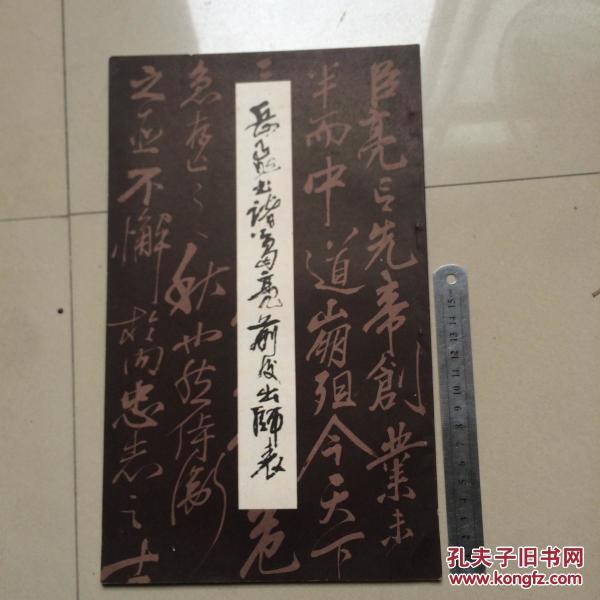 岳飛书諸葛亮前後出師表
臣亮言先帝創業未
半而中道崩殂今天下
三
危
急存亡之秋也然侍衛
之臣不懈於内忠志之士
孔夫子旧书网
www.kongfz.com